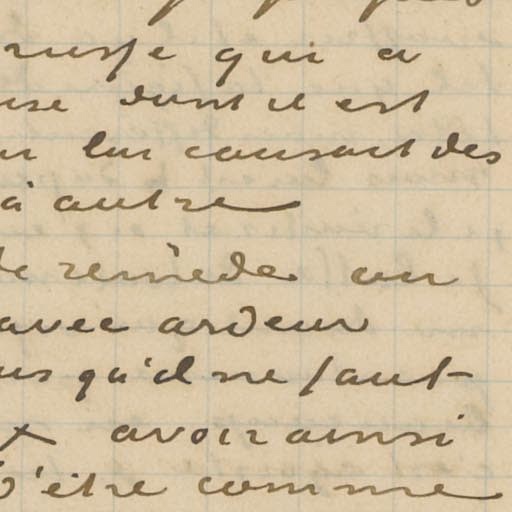 russe qui a
use dont il est
lui causait des
à autre
de remède au
avec ardeur
us qu'il ne faut
avoir ainsi
d'être comme